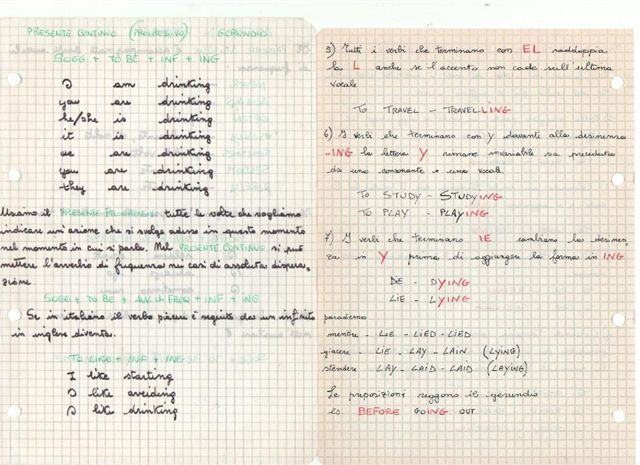 PRESENTE CONTINUO (PROGRESSIVO) GERUNDIO
SOGG + TO BE + INF + ING
I am drinking
you are drinking
he/she is drinking
it is drinking
we are drinking
you are drinking
they are drinking
Usiamo il PRESENTE PROGRESSIVO tutte le volte che vogliamo
indicare un'azione che si svolge adesso in questo momento
nel momento in cui si parla. Nel PRESENTE CONTINUO si può
mettere l'avverbio di frequenza nei casi di assoluta dispera-
zione.
SOGG + TO BE + AVV. di FREQ + INF + ING
Se in italiano il verbo piacere è seguito da un infinito
in inglese diventa.
TO LIKE + INF + ING
I like starting
I like avoiding
I like drinking
5) Tutti i verbi che terminano con EL raddoppia
la L anche se l'accento non cade sull'ultima
vocale
TO TRAVEL - TRAVELLING
6) I verbi che terminano con y davanti alla desinenza
-ING la lettera Y rimane invariabile sia preceduta
da una consonante o una vocale
TO STUDY - STUDYING
TO PLAY - PLAYING
7) I verbi che terminano IE cambiano la desinen-
za in Y prima di aggiungere la forma in ING
DIE - DYING
LIE - LYING
paradigma
mentire - LIE - LIED - LIED
giacere - LIE - LAY - LAIN (LYING)
stendere - LAY - LAID - LAID (LAYING)
Le preposizioni reggono il gerundio
es BEFORE GOING OUT